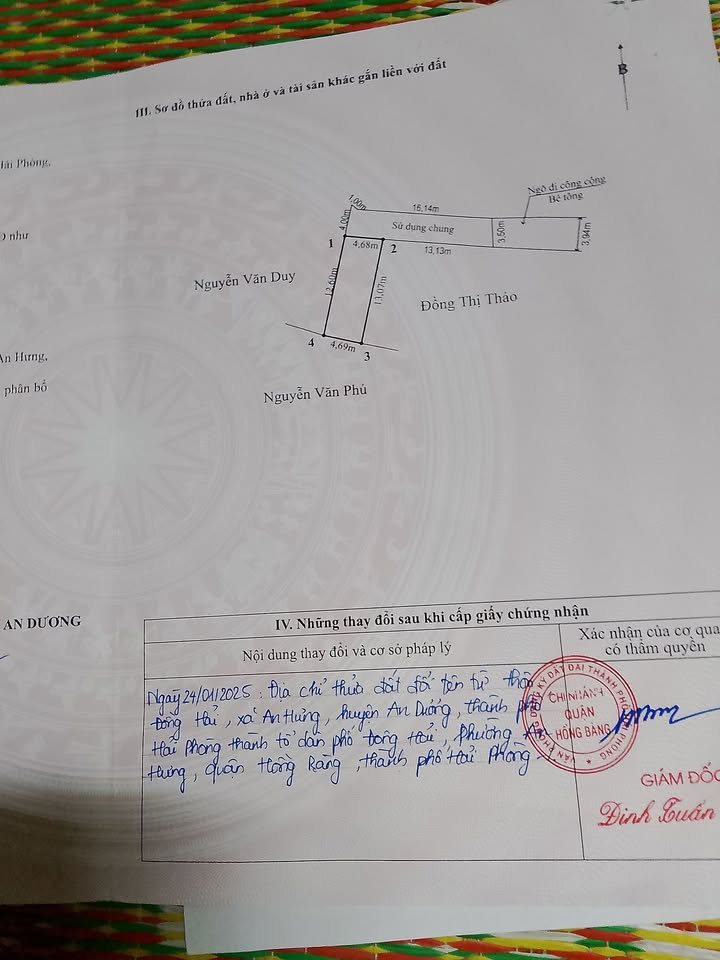 III. Sơ đồ thửa đất, nhà ở và tài sản khác gắn liền với đất
B
Hải Phòng,
như
An Hưng,
phân bổ
Ngõ đi công cộng
Bê tông
1,00m
16,14m
4,00m
Sử dụng chung
3,50m
3,94m
1
4,68m
2
13,13m
Nguyễn Văn Duy
12,60m
13,07m
Đồng Thị Thảo
4
4,69m
3
Nguyễn Văn Phú
AN DƯƠNG
IV. Những thay đổi sau khi cấp giấy chứng nhận
Nội dung thay đổi và cơ sở pháp lý
Xác nhận của cơ qua
có thẩm quyền
Ngày 24/01/2025: Địa chỉ thửa đất đổi tên từ thôn
Đồng Hải, xã An Hưng, huyện An Dương, thành phố
Hải Phòng thành tổ dân phố Đồng Hải, phường An
Hưng, quận Hồng Bàng, thành phố Hải Phòng
VĂN PHÒNG ĐĂNG KÝ ĐẤT ĐAI THÀNH PHỐ HẢI PHÒNG
CHI NHÁNH
QUẬN
HỒNG BÀNG
GIÁM ĐỐC
Đinh Tuấn